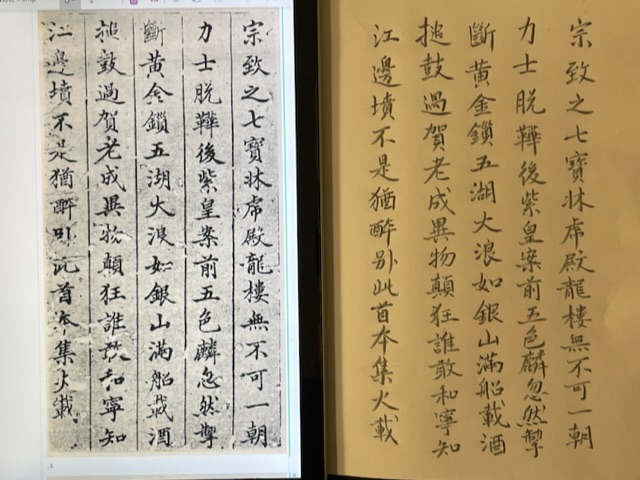 宗致之七寶牀席殿龍樓無不可一朝
力士脫鞾後紫皇案前五色麟忽然掣
斷黃金鎖五湖大浪如銀山滿船載酒
搥鼓過賀老成異物顛狂誰敢和寧知
江邊墳不是猶醉別此首本集火載
宗致之七寶牀席殿龍樓無不可一朝
力士脫鞾後紫皇案前五色麟忽然掣
斷黃金鎖五湖大浪如銀山滿船載酒
搥鼓過賀老成異物顛狂誰敢和寧知
江邊墳不是猶醉別此首本集火載